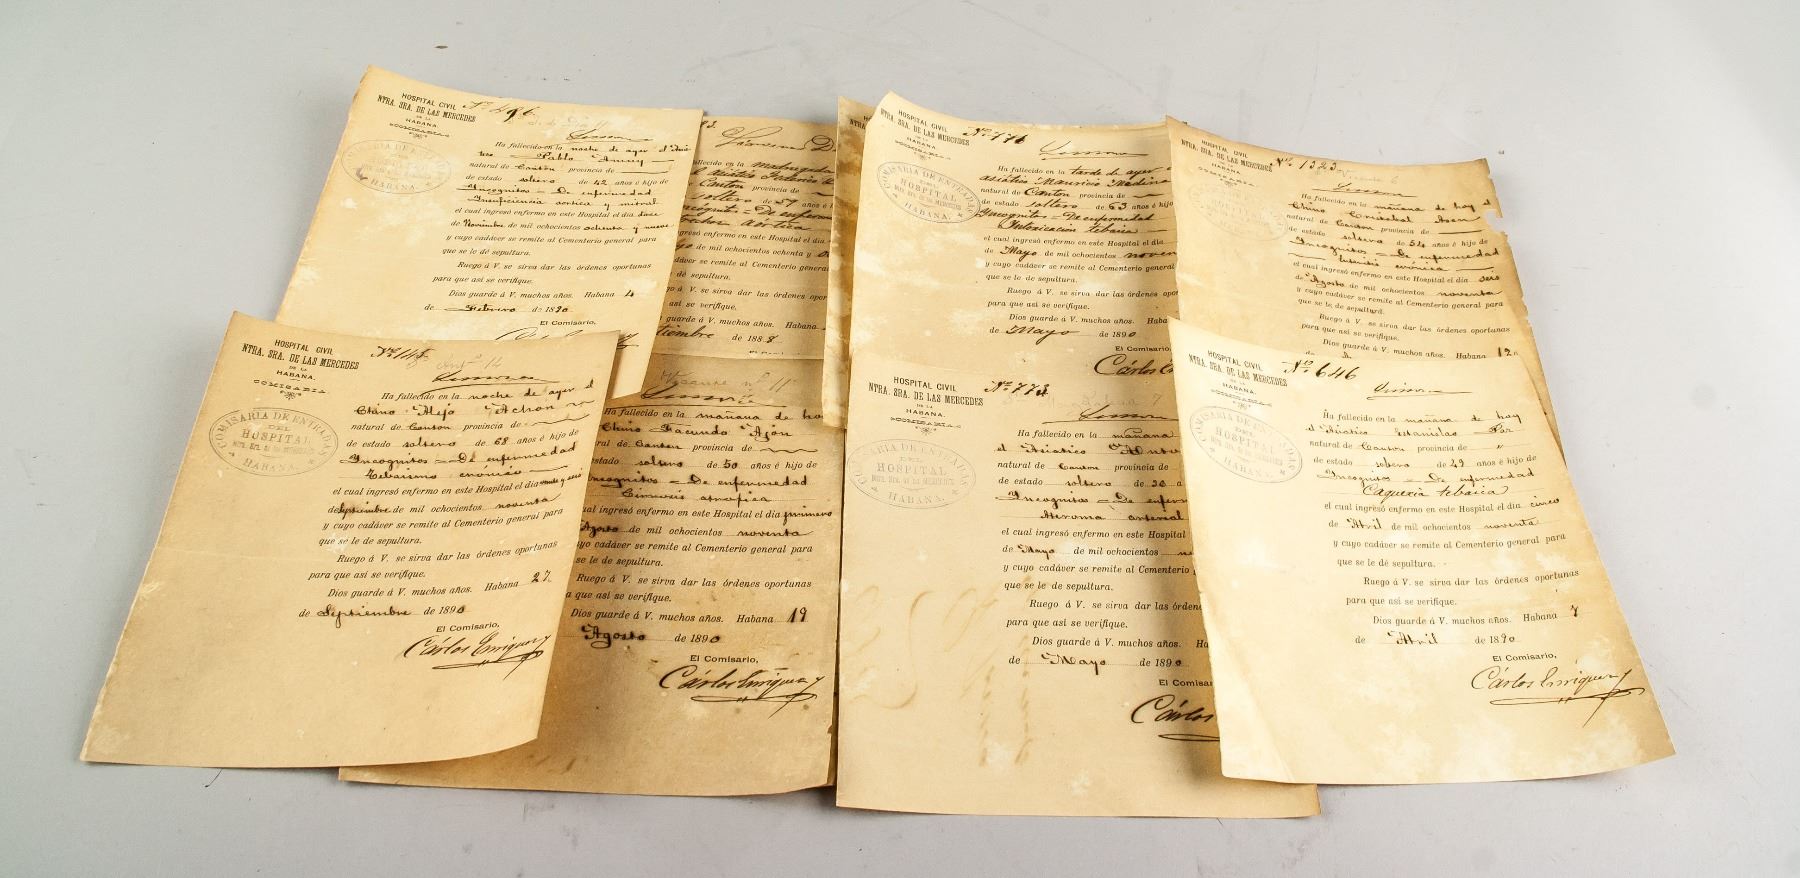 HOSPITAL CIVIL
NTRA. SRA. DE LAS MERCEDES
DE LA
HABANA.
COMISARIA
Nº 496
COMISARIA DE ENTRADAS
HABANA.
Ha fallecido en la noche de ayer el
Pablo
natural de Canton provincia de
de estado soltero de 42 años é hijo de
Incognitos = De enfermedad
Insuficiencia aortica y mitral
el cual ingresó enfermo en este Hospital el dia doce
Noviembre de mil ochocientos ochenta y nueve
y cuyo cadáver se remite al Cementerio general para
que se lé dé sepultura.
Ruego á V. se sirva dar las órdenes oportunas
para que asi se verifique.
Dios guarde á V. muchos años. Habana 4
de Febrero de 1890
El Comisario,
madrugada
asiático Federico
Canton provincia de
soltero de 57 años é
= De enfermedad
aortica
ingresó enfermo en este Hospital el dia
de mil ochocientos ochenta y
cadáver se remite al Cementerio general
sepultura.
á V. se sirva dar las órdenes opor
se verifique.
guarde á V. muchos años. Habana
Septiembre de 1888
HOSPITAL CIVIL
NTRA. SRA. DE LAS MERCEDES
DE LA
HABANA.
COMISARIA
Nº 771
COMISARIA DE ENTRADAS
DEL
HOSPITAL
NTRA. SRA. DE LAS MERCEDES
HABANA.
Ha fallecido en la tarde de ayer el
asiático Mauricio Medina
natural de Canton provincia de
de estado soltero de 63 años é hijo
Incognitos = De enfermedad
Intoxicacion tebaica
el cual ingresó enfermo en este Hospital el dia
de Mayo de mil ochocientos noven
y cuyo cadáver se remite al Cementerio general
que se le de sepultura.
Ruego á V. se sirva dar las órdenes
para que asi se verifique.
Dios guarde á V. muchos años. Habana
de Mayo de 1890
El Comisario
Cárlos
HOSPITAL CIVIL
NTRA. SRA. DE LAS MERCEDES
DE LA
HABANA.
COMISARIA
Nº 1323
Ha fallecido en la mañana de hoy el
Chino Cristobal Asen
natural de Canton provincia de
de estado soltero de 54 años é hijo de
Incognitos = De enfermedad
crónica
el cual ingresó enfermo en este Hospital el dia seis
de Agosto de mil ochocientos noventa
y cuyo cadáver se remite al Cementerio general para
que se le dé sepultura.
Ruego á V. se sirva dar las órdenes oportunas
para que asi se verifique.
Dios guarde á V. muchos años. Habana 12
HOSPITAL CIVIL
NTRA. SRA. DE LAS MERCEDES
DE LA
HABANA.
COMISARIA
COMISARIA DE ENTRADAS
DEL
HOSPITAL
NTRA. SRA. DE LAS MERCEDES
HABANA.
Ha fallecido en la noche de ayer el
Chino Alejo Achon
natural de Canton provincia de
de estado soltero de 68 años é hijo de
Incognitos = De enfermedad
Tebaismo crónico
el cual ingresó enfermo en este Hospital el dia
de Septiembre de mil ochocientos noventa
y cuyo cadáver se remite al Cementerio general para
que se le dé sepultura.
Ruego á V. se sirva dar las órdenes oportunas
para que asi se verifique.
Dios guarde á V. muchos años. Habana 27
de Septiembre de 1890
El Comisario,
Cárlos Enriquez
Ha fallecido en la mañana de ho
Chino Facundo Ajón
de Canton provincia de
estado soltero de 50 años é hijo de
Incognitos = De enfermedad
Cirrosis atrofica
ingresó enfermo en este Hospital el dia primero
Agosto de mil ochocientos noventa
cuyo cadáver se remite al Cementerio general para
se le dé sepultura.
Ruego á V. se sirva dar las órdenes oportunas
que asi se verifique.
Dios guarde á V. muchos años. Habana 19
Agosto de 1890
El Comisario,
Cárlos Enriquez
HOSPITAL CIVIL
NTRA. SRA. DE LAS MERCEDES
DE LA
HABANA.
COMISARIA
Nº 773
COMISARIA DE ENTRADAS
DEL
HOSPITAL
NTRA. SRA. DE LAS MERCEDES
HABANA.
Ha fallecido en la mañana
el Asiatico
natural de Canton provincia
de estado soltero de
Incognitos = De enferm
Ateroma arterial
el cual ingresó enfermo en este Hospital
de Mayo de mil ochocientos
y cuyo cadáver se remite al Cementerio
que se le dé sepultura.
Ruego á V. se sirva dar las órdene
para que asi se verifique.
Dios guarde á V. muchos años. Ha
de Mayo de 1890
El Comisar
Cárlos
HOSPITAL CIVIL
NTRA. SRA. DE LAS MERCEDES
DE LA
HABANA.
COMISARIA
Nº 646
COMISARIA DE ENTRADAS
DEL
HOSPITAL
NTRA. SRA. DE LAS MERCEDES
HABANA.
Ha fallecido en la mañana de hoy
el Asiatico Estanislao
natural de Canton provincia de "
de estado soltero de 49 años é hijo de
Incognitos = De enfermedad
Caquexia tebaica
el cual ingresó enfermo en este Hospital el dia cinco
de Abril de mil ochocientos noventa
y cuyo cadáver se remite al Cementerio general para
que se le dé sepultura.
Ruego á V. se sirva dar las órdenes oportunas
para que asi se verifique.
Dios guarde á V. muchos años. Habana 7
de Abril de 1890
El Comisario,
Cárlos Enriquez